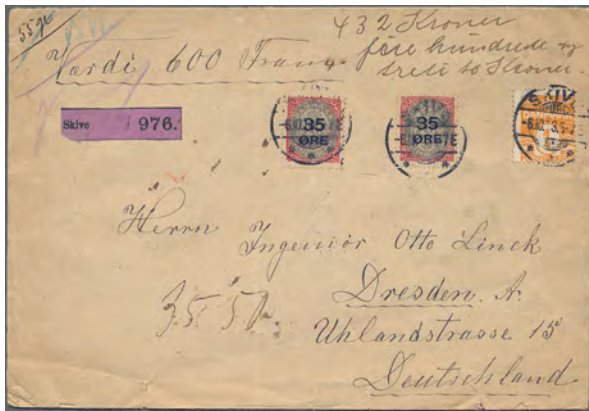 55 gr
432 Kroner
fire hundrede og
treti to Kroner.
Værdi 600 Franc
Skive 976.
35
ØRE
35
ØRE
SKIVE
Herrn Ingeniör Otto Linck
Dresden. A.
Uhlandstrasse 15
Deutschland